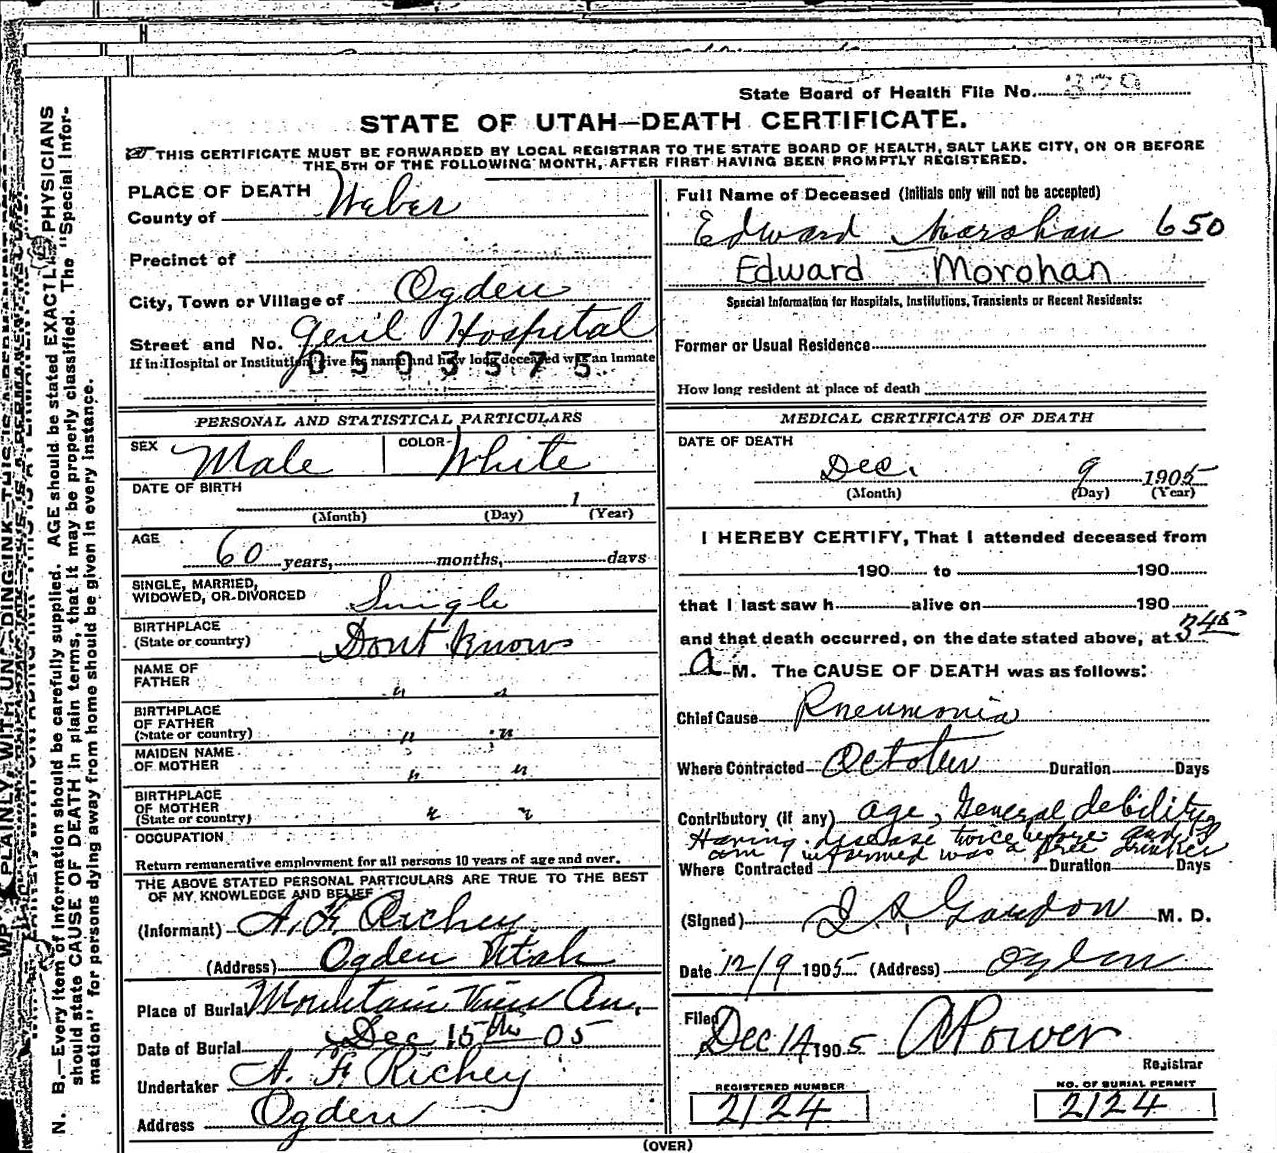 State Board of Health File No. 379
STATE OF UTAH—DEATH CERTIFICATE.
THIS CERTIFICATE MUST BE FORWARDED BY LOCAL REGISTRAR TO THE STATE BOARD OF HEALTH, SALT LAKE CITY, ON OR BEFORE
THE 5TH OF THE FOLLOWING MONTH, AFTER FIRST HAVING BEEN PROMPTLY REGISTERED.
PLACE OF DEATH
County of Weber
Precinct of
City, Town or Village of Ogden
Street and No. Genl Hospital
If in Hospital or Institution give its name and how long deceased was an inmate
0503575
PERSONAL AND STATISTICAL PARTICULARS
SEX Male COLOR White
DATE OF BIRTH
1
(Month) (Day) (Year)
AGE
60 years, months, days
SINGLE, MARRIED,
WIDOWED, OR DIVORCED Single
BIRTHPLACE
(State or country) Dont Know
NAME OF
FATHER " "
BIRTHPLACE
OF FATHER
(State or country) " "
MAIDEN NAME
OF MOTHER " "
BIRTHPLACE
OF MOTHER
(State or country) " "
OCCUPATION
Return remunerative employment for all persons 10 years of age and over.
THE ABOVE STATED PERSONAL PARTICULARS ARE TRUE TO THE BEST
OF MY KNOWLEDGE AND BELIEF
(Informant) A. F. Richey
(Address) Ogden Utah
Place of Burial Mountain View Cem.
Date of Burial Dec 15th 05
Undertaker A. F. Richey
Address Ogden
Full Name of Deceased (Initials only will not be accepted)
Edward Morohan 650
Edward Morohan
Special Information for Hospitals, Institutions, Transients or Recent Residents:
Former or Usual Residence
How long resident at place of death
MEDICAL CERTIFICATE OF DEATH
DATE OF DEATH
Dec. 9 1905
(Month) (Day) (Year)
I HEREBY CERTIFY, That I attended deceased from
190 to 190
that I last saw h alive on 190
and that death occurred, on the date stated above, at 3 45
a M. The CAUSE OF DEATH was as follows:
Chief Cause Pneumonia
Where Contracted October Duration Days
Contributory (if any) age, General debility,
Having disease twice before and I
am informed was a free drinker
Where Contracted Duration Days
(Signed) Gordon M. D.
Date 12/9 1905 (Address) Ogden
Filed
Dec 14 1905 A Power
Registrar
REGISTERED NUMBER
2124
NO. OF BURIAL PERMIT
2124
(OVER)
N. B.—Every item of information should be carefully supplied. AGE should be stated EXACTLY. PHYSICIANS
should state CAUSE OF DEATH in plain terms, that it may be properly classified. The "Special Infor-
mation" for persons dying away from home should be given in every instance.